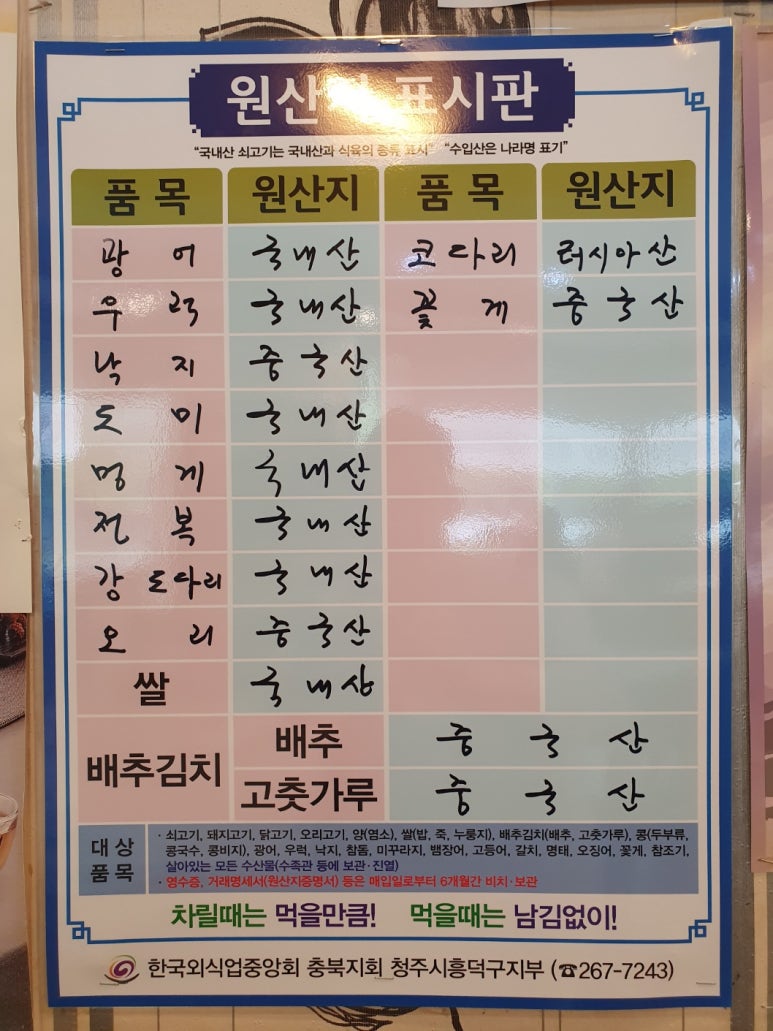 원산 표시판
"국내산 쇠고기는 국내산과 식육의 종류 표시" "수입산은 나라명 표기"
품목 원산지 품목 원산지
광어 국내산 코다리 러시아산
우럭 국내산 꽃게 중국산
낙지 중국산
도미 국내산
멍게 국내산
전복 국내산
강도다리 국내산
오리 중국산
쌀 국내산
배추김치 배추 중국산
고춧가루 중국산
대상품목
· 쇠고기, 돼지고기, 닭고기, 오리고기, 양(염소), 쌀(밥, 죽, 누룽지), 배추김치(배추, 고춧가루), 콩(두부류,
콩국수, 콩비지), 광어, 우럭, 낙지, 참돔, 미꾸라지, 뱀장어, 고등어, 갈치, 명태, 오징어, 꽃게, 참조기,
살아있는 모든 수산물(수족관 등에 보관·진열)
· 영수증, 거래명세서(원산지증명서) 등은 매입일로부터 6개월간 비치·보관
차릴때는 먹을만큼! 먹을때는 남김없이!
한국외식업중앙회 충북지회 청주시흥덕구지부 (☎267-7243)